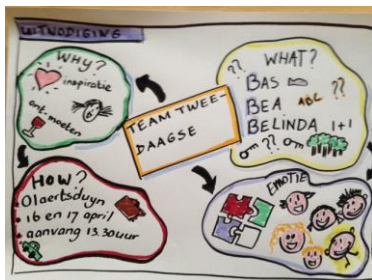 UITNODIGING
WHY?
inspiratie
ont-moeten
TEAM TWEE-
DAAGSE
WHAT?
??
BAS
BEA AOC ??
BELINDA 1+1
??
HOW?
Olaertsduyn
16 en 17 april
aanvang 13.30uur
EMOTIE